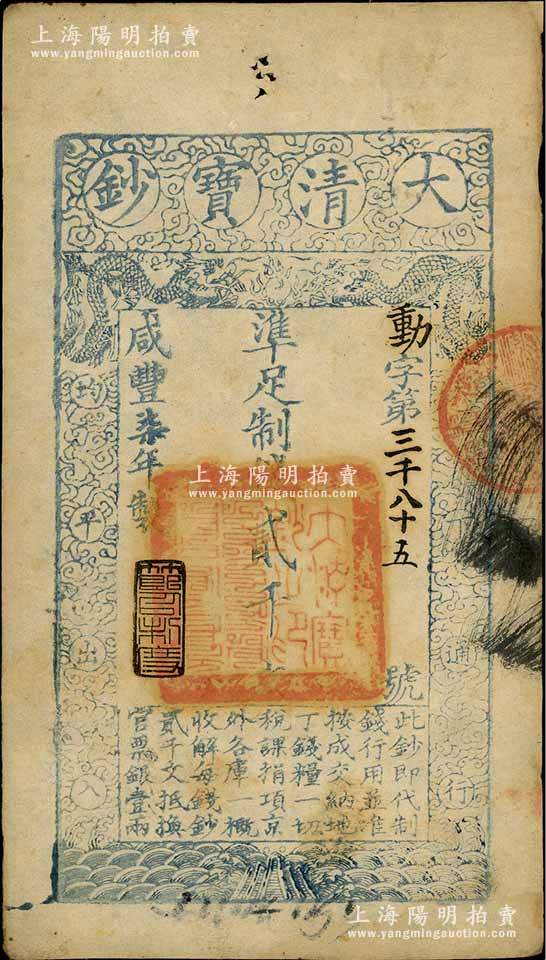 上海陽明拍賣
www.yangmingauction.com
大清寶鈔
動字第三千八十五號
準足制錢貳千文
咸豐柒年製
天下通行
均平出入
此鈔即代制
錢行用並准
按成交納地
丁錢糧一切
稅課捐項京
外各庫一概
收解每錢鈔
貳千文抵換
官票銀壹兩
上海陽明拍賣
www.yangmingauction.com
上海陽明拍賣
www.yangmingauction.com